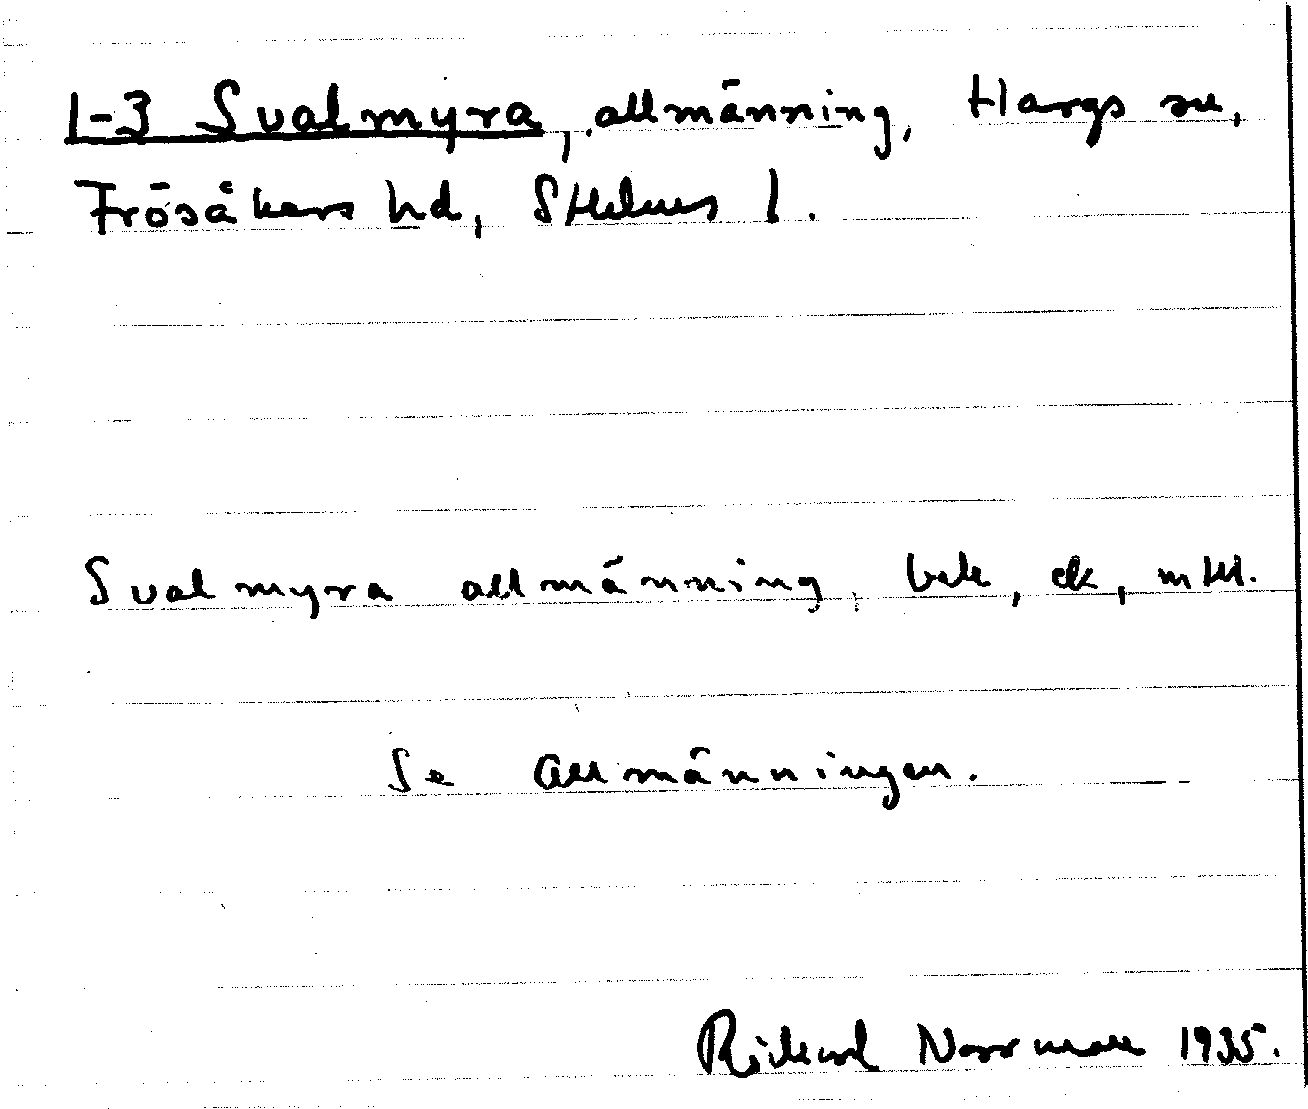 1-3 Svalmyra, allmänning, Hargs sn,
Frösåkers hd, Sthlms l.
Svalmyra allmänning, bebe, ek, mtl.
Se Allmänningen.
Rickard Norrman 1935.